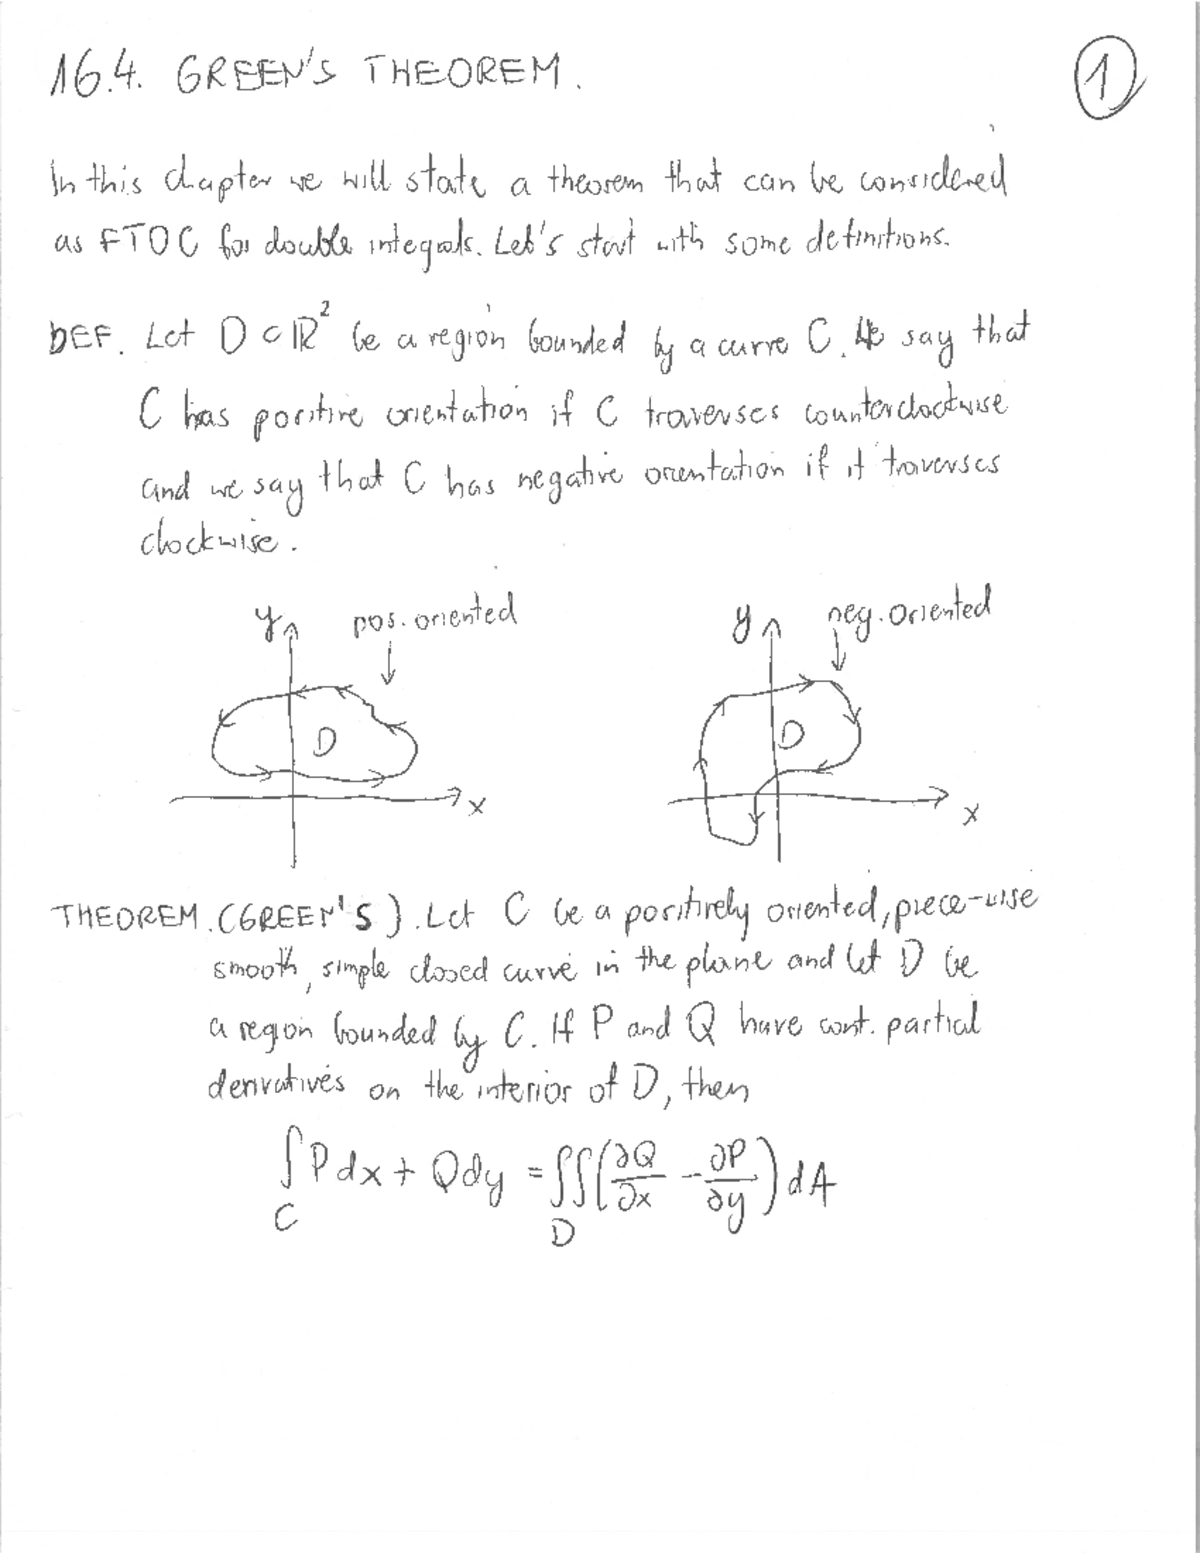 16.4. GREEN'S THEOREM.
1
In this chapter we will state a theorem that can be considered
as FTOC for double integrals. Let's start with some definitions.
DEF. Let D ⊂ ℝ² be a region bounded by a curve C. We say that
C has positive orientation if C traverses counterclockwise
and we say that C has negative orientation if it traverses
clockwise.
y pos. oriented
D
x
y neg. oriented
D
x
THEOREM. (GREEN'S). Let C be a positively oriented, piece-wise
smooth, simple closed curve in the plane and let D be
a region bounded by C. If P and Q have cont. partial
derivatives on the interior of D, then
∫_C Pdx + Qdy = ∬_D (∂Q/∂x - ∂P/∂y) dA